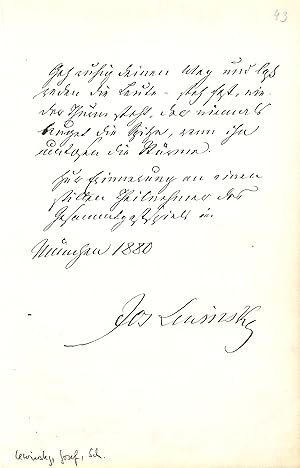 43
Geh ruhig deinen Weg und laß
reden die Leute – steh fest, wie
der Thurm steht, der niemals
beuget die Spitze, wenn ihn
umtosen die Stürme.
Zur Erinnerung an einen
stillen Theilnehmer des
Gesammtgastspiels in
München 1880
Jos Lewinsky
Lewinsky, Josef, Sch.